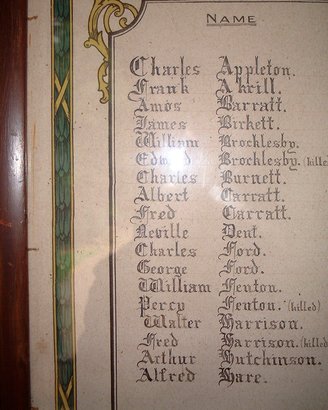 NAME
Charles Appleton.
Frank A'krill.
Amos Barratt.
James Birkett.
William Brocklesby.
Edwd Brocklesby. (killed
Charles Burnett.
Albert Carratt.
Fred Carratt.
Neville Dent.
Charles Ford.
George Ford.
William Fenton.
Percy Fenton. (killed)
Walter Harrison.
Fred Harrison. (killed
Arthur Hutchinson.
Alfred Hare.